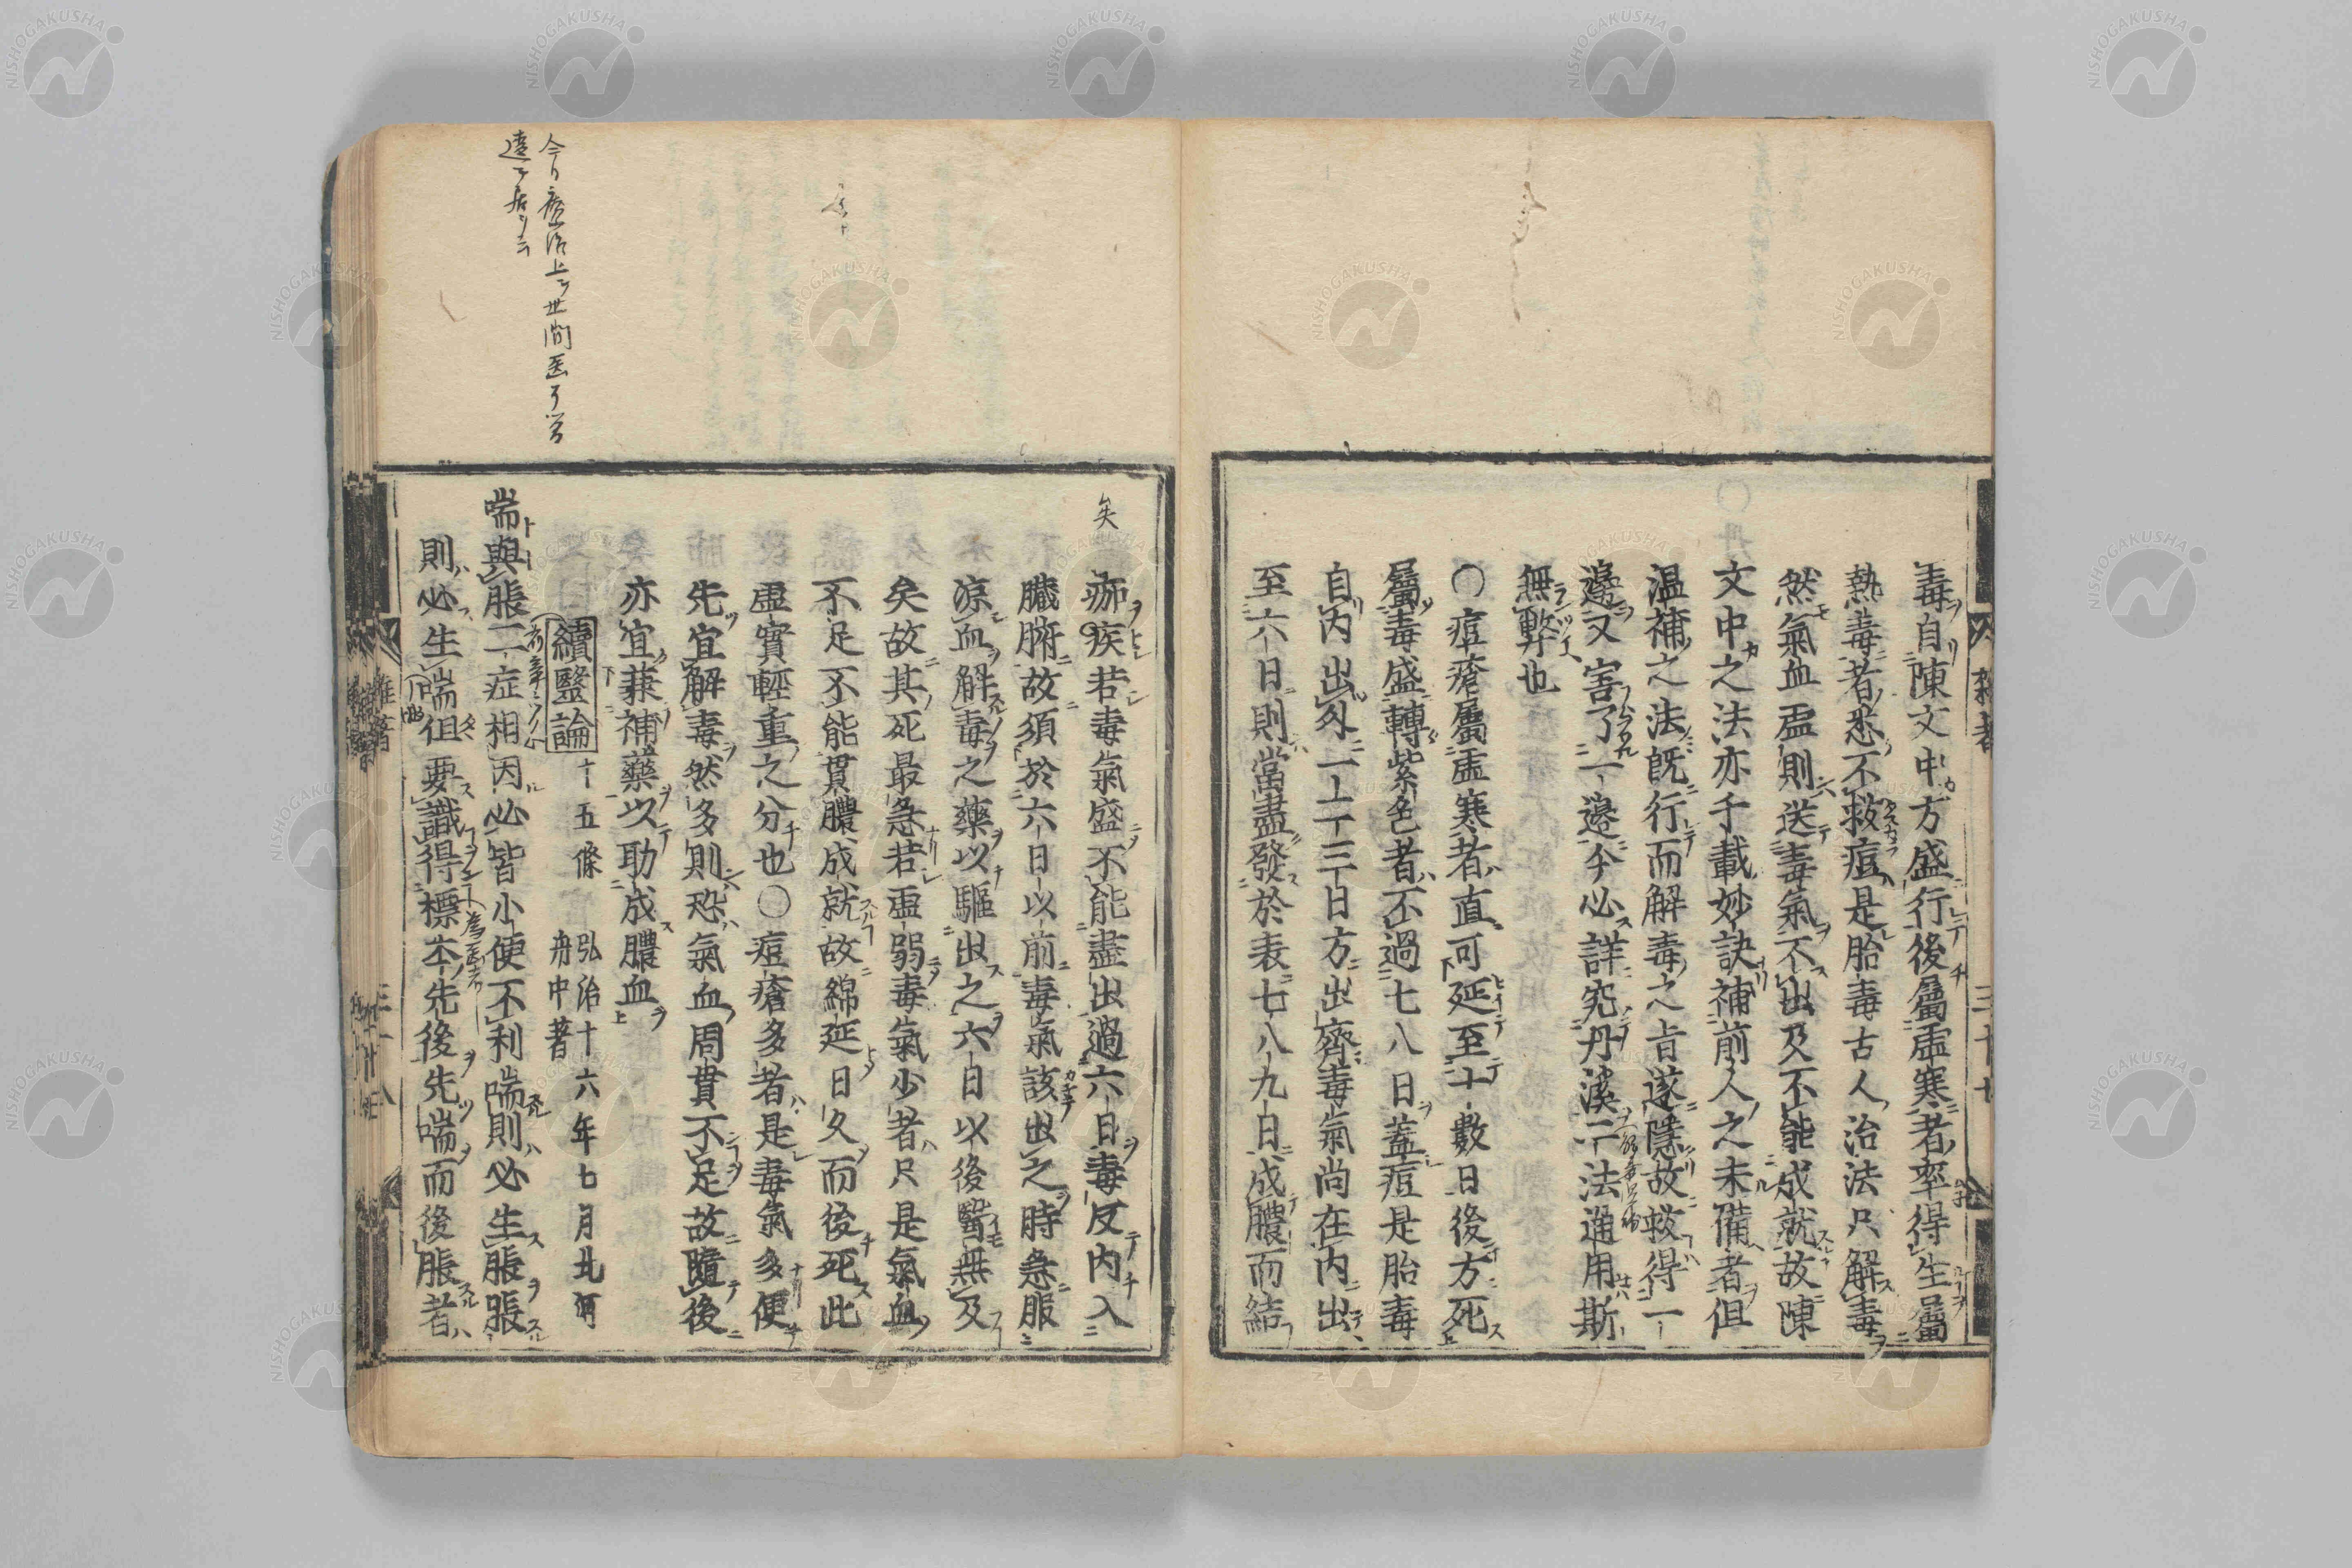 毒自陳文中方盛行後屬虛寒者率得生屬
熱毒者悉不救痘是胎毒古人治法只解毒
然氣血虛則送毒氣不出及不能成就故陳
文中之法亦千載妙訣補前人之未備者但
温補之法既行而解毒之旨遂隱故救得一
邊又害了一邊今必詳究丹溪二法通用斯
無弊也
〇痘瘡屬虛寒者直可延至十數日後方死
屬毒盛轉紫色者不過七八日蓋痘是胎毒
自内出外一二三日方出齊毒氣尚在内出
至六日則當盡發於表七八九日成膿而結
矣
痂疾若毒氣盛不能盡出過六日毒反内入
臟腑故須於六日以前毒氣該出之時急服
凉血解毒之藥以驅出之六日以後醫無及
矣故其死最急若虛弱毒氣少者只是氣血
不足不能貫膿成就故綿延日久而後死此
虛實輕重之分也〇痘瘡多者是毒氣多便
先宜解毒然多則恐氣血周貫不足故隨後
亦宜兼補藥以助成膿血
續鹽論 十五條 弘治十六年七月北河
舟中著
喘與脹二症相因必皆小便不利喘則必生脹脹
則必生喘但要識得標本先後先喘而後脹者
今日療治上ニ世間医ヲ学
違テ居リ云
雜著
三十七
NISHOGAKUSHA